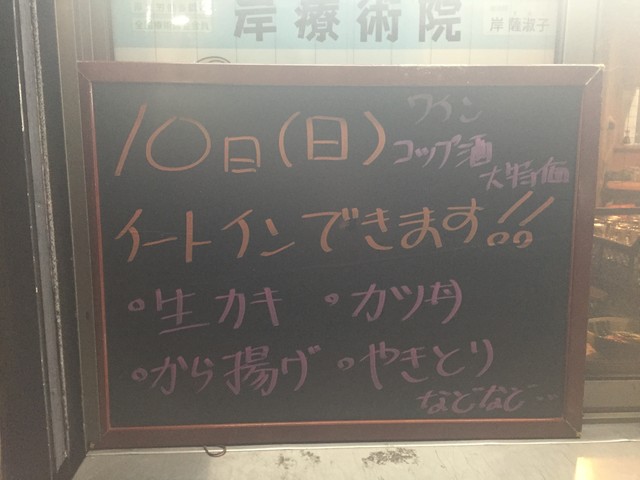 岸療術院
岸 薩淑子
10日(日)
ワイン
コップ酒
大特価
イートインできます!!
・生カキ ・カツ丼
・から揚げ ・やきとり
などなど…